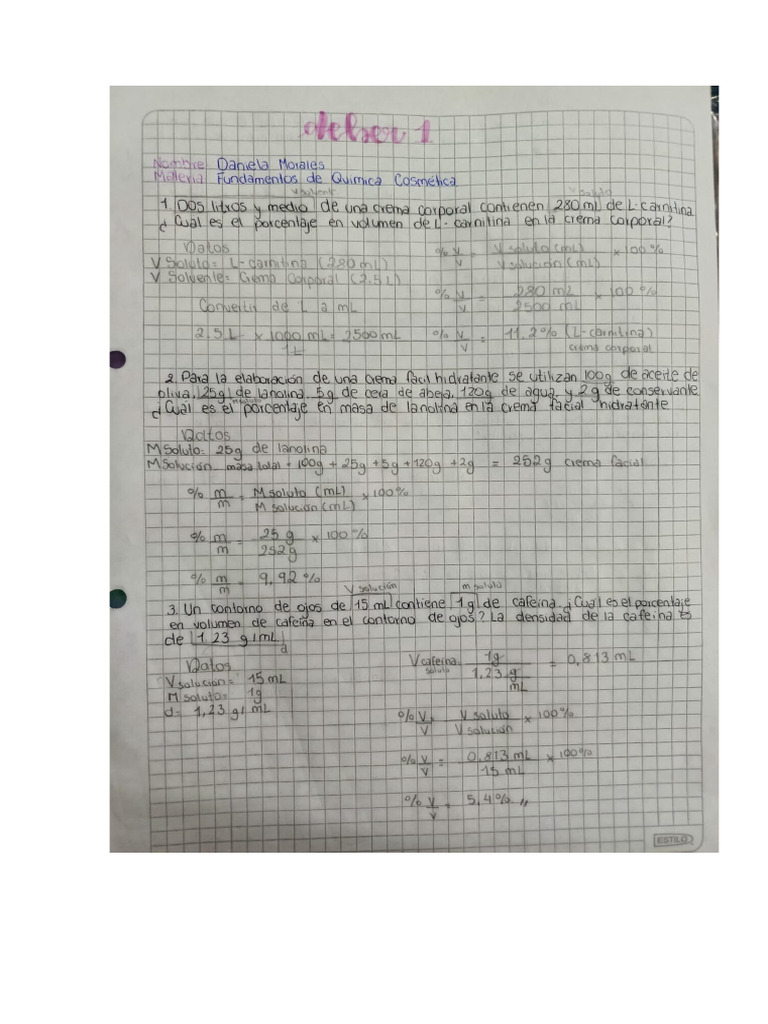 deber 1
Nombre: Daniela Morales
Materia: Fundamentos de Quimica Cosmética
V solvente V soluto
1. Dos litros y medio de una crema corporal contienen 280 mL de L-carnitina
¿Cuál es el porcentaje en volumen de L-carnitina en la crema corporal?
Datos
V Soluto= L-carnitina (280 mL)
V Solvente= Crema Corporal (2.5L)
Convertir de L a mL
2.5 L × 1000 mL = 2500 mL
1L
% V/V = V soluto (mL) / V solución (mL) × 100 %
% V/V = 280 mL / 2500 mL × 100 %
% V/V = 11.2 % (L-carnitina)
crema corporal
2. Para la elaboración de una crema facil hidratante se utilizan 100g de aceite de
oliva, 25g de lanolina, 5g de cera de abeja, 120g de agua, y 2g de conservante
¿Cuál es el porcentaje en masa de lanolina en la crema facial hidratante
Datos
M Soluto= 25g de lanolina
M Solución masa total = 100g + 25g + 5g + 120g + 2g = 252g crema facial
% m/m = M soluto (mL) / M solución (mL) × 100%
% m/m = 25 g / 252g × 100 %
% m/m = 9.92 %
V solución m soluto
3. Un contorno de ojos de 15 mL contiene 1g de cafeína ¿Cuál es el porcentaje
en volumen de cafeína en el contorno de ojos? La densidad de la cafeína es
de 1.23 g/mL.
d
Datos
V solucion= 15 mL
M soluto= 1g
d= 1,23 g/mL
V cafeína soluto = 1g / 1,23 g/mL = 0,813 mL
% V/V = V soluto / V solución × 100%
% V/V = 0,813 mL / 15 mL × 100%
% V/V = 5,4% //
ESTILO